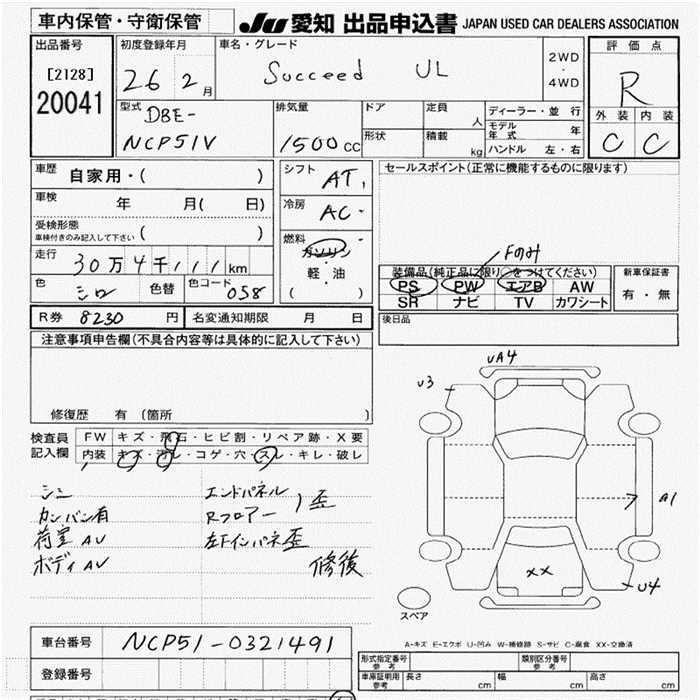 車内保管・守衛保管
JU 愛知 出品申込書 JAPAN USED CAR DEALERS ASSOCIATION
出品番号
[2128]
20041
初度登録年月
26 2月
車名・グレード
Succeed UL
2WD
・
4WD
評価点
R
外装 内装
C C
型式
DBE-
NCP51V
排気量
1500CC
ドア
定員
人
形状
積載
kg
ディーラー・並行
モデル年式 年
ハンドル 左・右
車歴
自家用・( )
車検
年 月( 日)
受検形態
車検付きのみ記入して下さい ( )
走行
30万4千111km
色
シロ
色替
色コード
058
シフト
AT
冷房
AC
燃料
ガソリン
軽・油
( )
セールスポイント(正常に機能するものに限ります)
Fのみ
装備品(純正品に限り○をつけてください)
PS PW エアB AW
SR ナビ TV カワシート
新車保証書
有・無
後日品
R券 8230 円
名変通知期限 月 日
注意事項申告欄(不具合内容等は具体的に記入して下さい)
修復歴 有 (箇所 )
検査員
記入欄
FW キズ・飛石・ヒビ割・リペア跡・X要
内装 キズ・汚レ・コゲ・穴・スレ・キレ・破レ
カンバン有
荷室AU
ボディAU
エンドパネル
Rフロアー
歪
左Fインパネ歪
修後
UA4
U3
A1
XX
U4
スペア
A-キズ E-エクボ U-凹み W-補修跡 S-サビ C-腐食 XX-交換済
車台番号
NCP51-0321491
登録番号
形式指定番号
参考
類別区分番号
参考
車庫証明用
参考
長さ cm
幅 cm
高さ cm